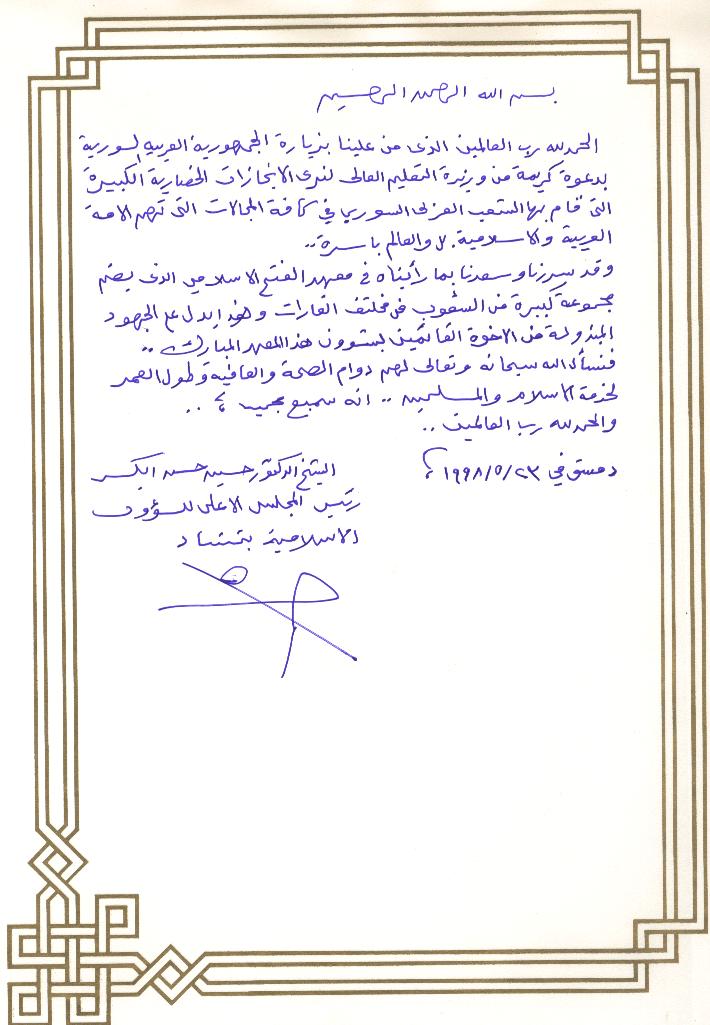 بسم الله الرحمن الرحيم
الحمد لله رب العالمين الذى من علينا بزيارة الجمهورية العربية السورية
بدعوة كريمة من وزيرة التعليم العالى لنرى الانجازات الحضارية الكبيرة
التى قام بها الشعب العربى السوري في كافة المجالات التى تهم الامة
العربية والاسلامية. لا والعالم باسرة..
وقد سررنا وسعدنا بما رأيناه في معهد الفتح الاسلامى الذى يضم
مجموعة كبيرة من الشعوب من مختلف القارات وهذا يدل على الجهود
المبذولة من الاخوة القائمين بشؤون هذا المعهد المبارك ..
فنسأل الله سبحانه وتعالى لهم دوام الصحة والعافية وطول العمر
لخدمة الاسلام والمسلمين .. انه سميع مجيب ؟ ..
والحمد لله رب العالمين ..
دمشق في ١٩٩٨/٥/٢٣ ؟
الشيخ الدكتور حسين حسن ابكر
رئيس المجلس الاعلى للشؤون
الاسلامية بتشاد